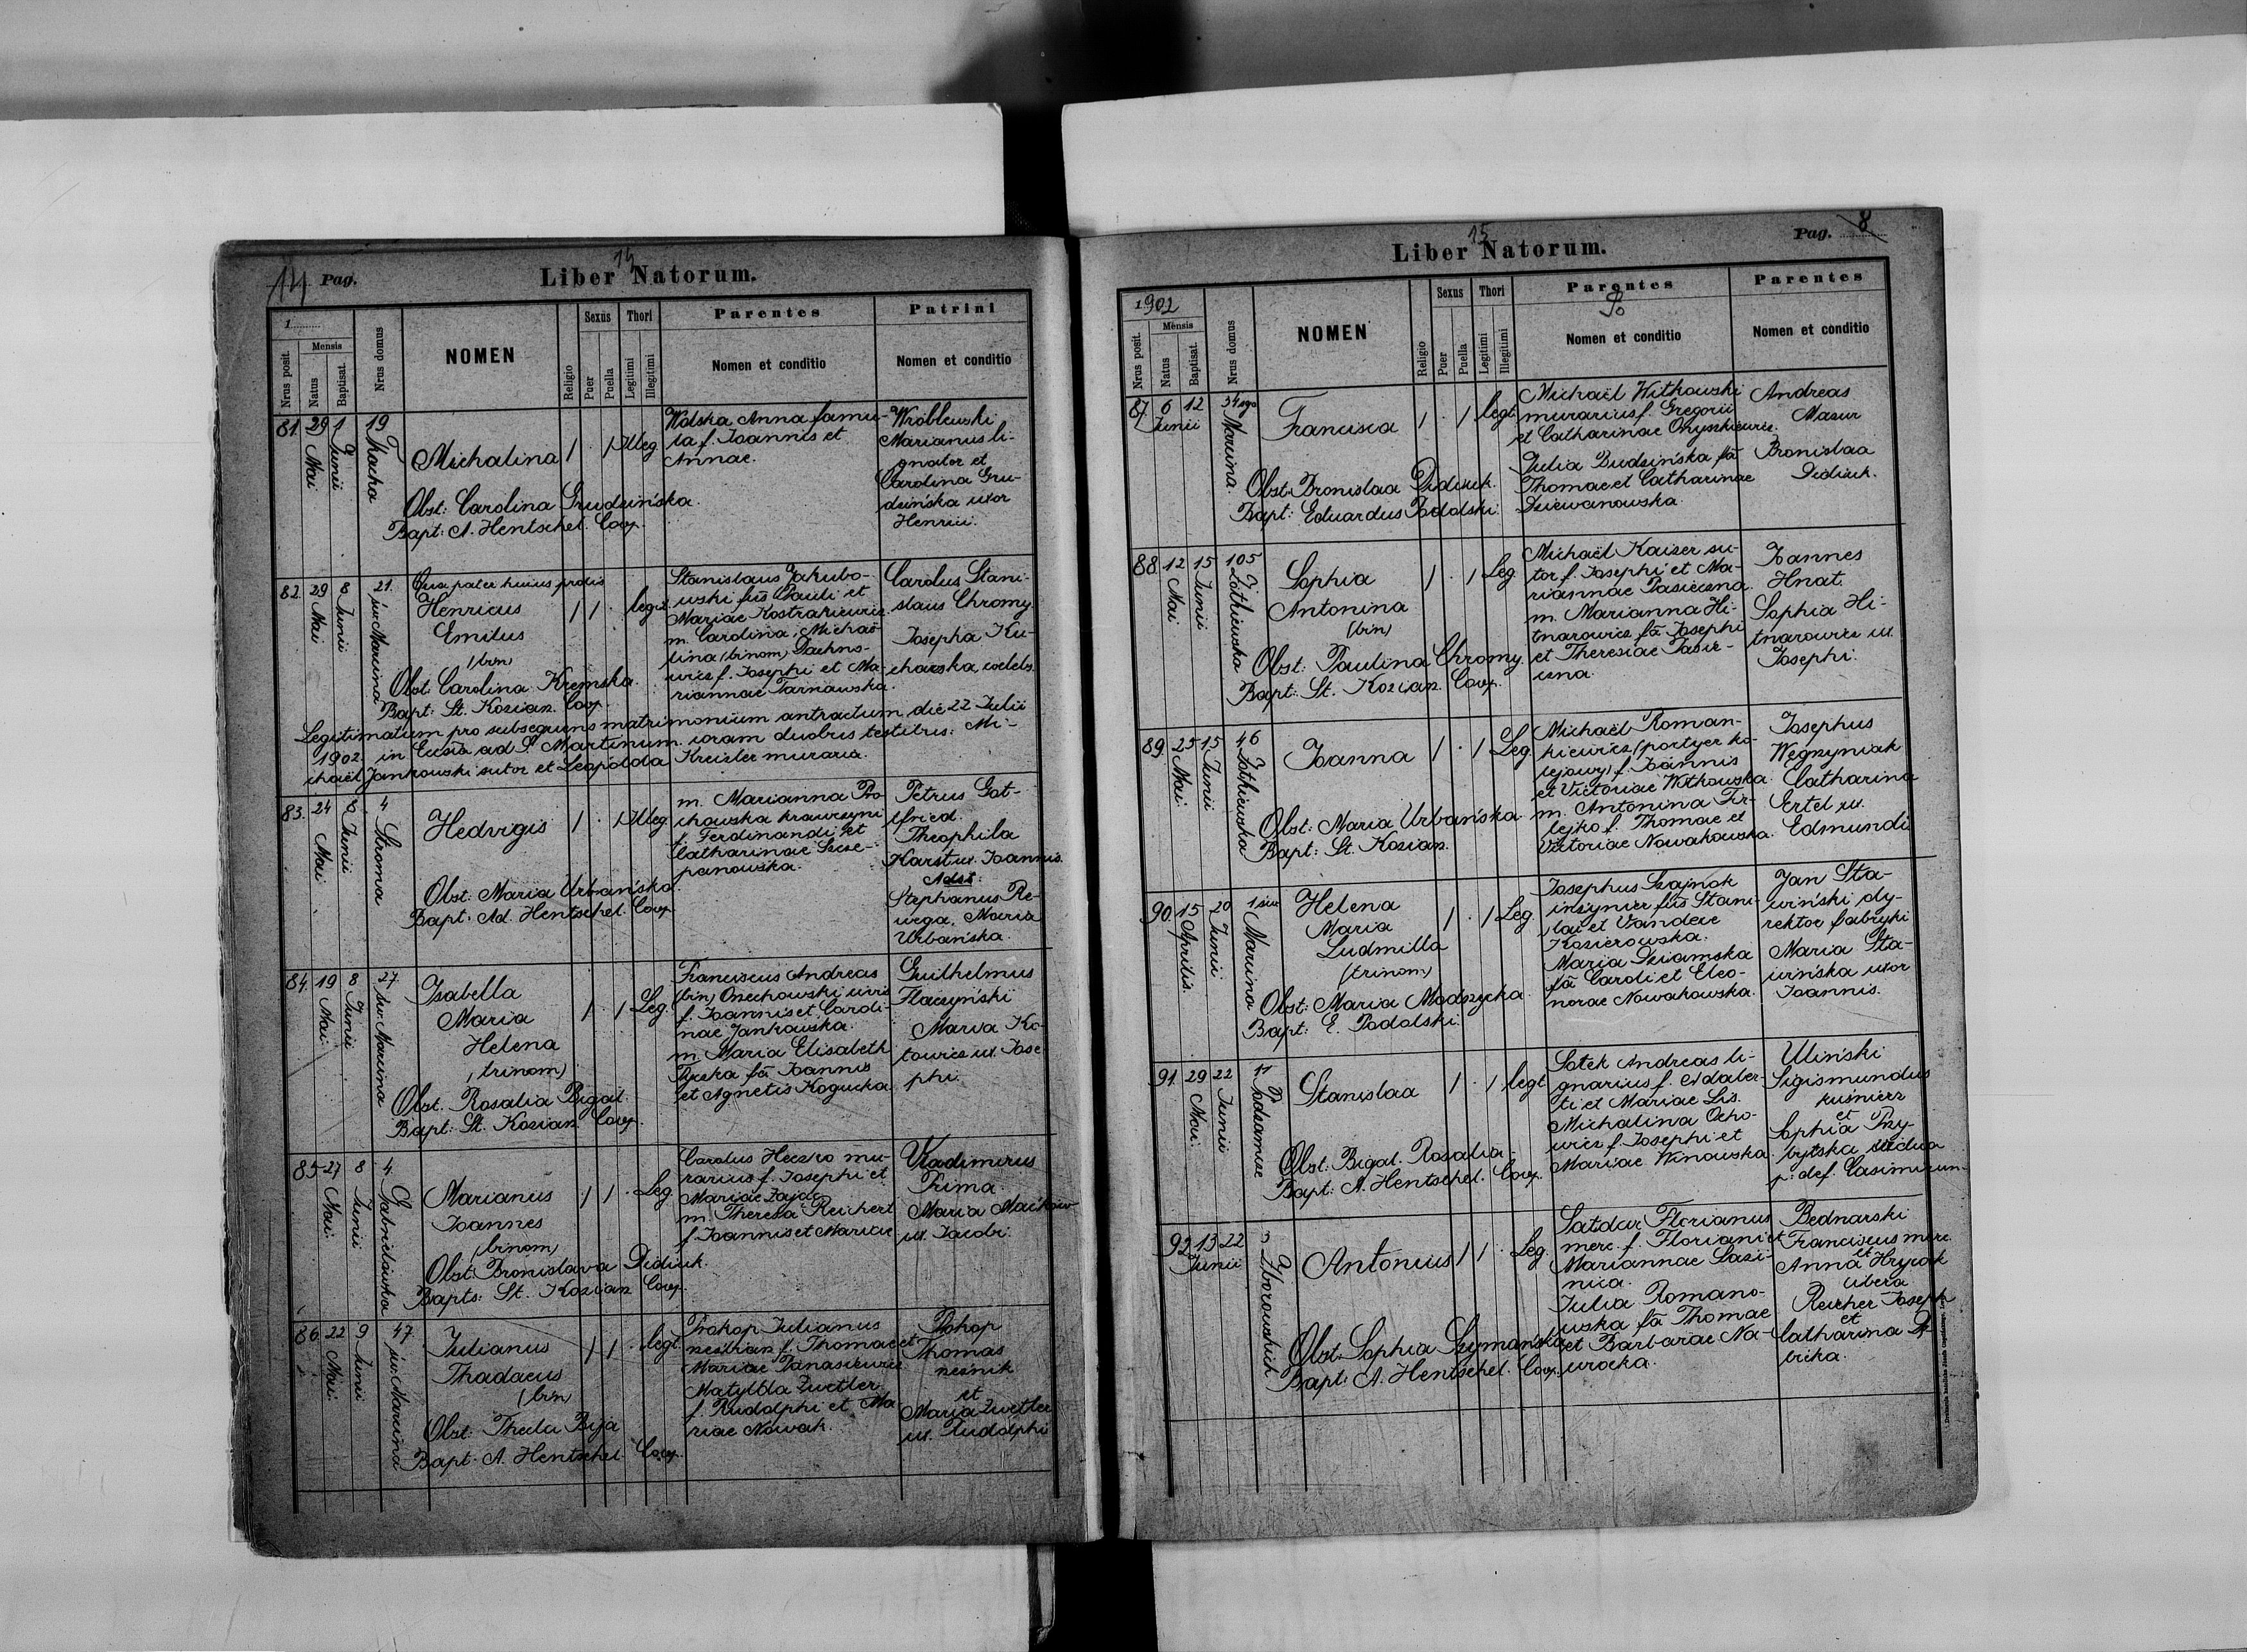 14 Pag.
14
Liber Natorum.
1
Nrus posit.
Mensis
Natus
Baptisat.
Nrus domus
NOMEN
Religio
Sexus
Puer
Puella
Thori
Legitimi
Illegitimi
Parentes
Nomen et conditio
Patrini
Nomen et conditio
81. 29 Mai 1 Junii 19
Michalina
1 . 1 Illeg
Obst: Carolina Grudzińska.
Bapt: A. Hentschel. Coop.
Wolska Anna famu-
la f. Joannis et
Annae.
Wróblewski
Marianus li-
gnator et
Carolina Gru-
dzińska uxor
Henrici.
82. 29 Mai 8 Junii 21. św. Marcina
Henricus
Emilus
(bin)
1 1 . legit
Obst: Carolina Kremska.
Bapt: St. Kozian. Coop.
Stanislaus Jakubo-
wski fus Pauli et
Mariae Kostrakiewicz
m. Carolina, Micha-
lina (binom)
wicz f. Josephi et Ma-
riannae Tarnawska.
Carolus Stani-
slaus Chromy.
Josepha Ku-
charska
Legitimatum pro subsequens matrimonium die 22 Julii
1902. in Ecclsia ad S. Martinum coram duobus testibus: Mi-
chaël Jankowski sutor et Leopolda Kreisler muraria.
83. 24 Mai 8 Junii 4 Stroma
Hedvigis
1 . 1 Illeg
Obst: Maria Urbańska.
Bapt: Ad. Hentschel. Coop.
m. Marianna Pro
chowska krawczyni
f. Ferdinandi et
Catharinae Szcze-
panowska.
Petrus Got-
tfried.
Theophila
Karst ux. Joannis.
Adst:
Stephanus Re-
wega, Maria
Urbańska.
84. 19 Mai. 8 Junii 27. św. Marcina
Isabella
Maria
Helena
(trinom)
1 . 1 Leg.
Obst. Rosalia Bigal.
Bapt: St. Kozian. Coop.
Franciscus Andreas
(bin) Orzechowski civis
f. Joannis et Caroli-
nae Jankowska.
m. Maria Elisabeth
fa Joannis
et Agnetis Kogucka
Guilhelmus
Flaczyński
Maria Ko-
towicz ux. Jose
phi.
85. 27 Mai. 8 Junii 4 Gabrielówka
Marianus
Joannes
(binom)
1 1 . Leg
Obst: Bronislava Didiuk.
Bapts: St. Kozian Coop.
Carolus Heczko mu-
rarius f. Josephi et
Mariae Zając
m. Theresa Reichert
f. Joannis et Mariae
Vladimirus
Prima.
Maria
ux. Jacobi.
86. 22 Mai. 9 Junii 47. św. Marcina
Julianus
Thadaeus
(bin)
1 1 . legt
Obst: Thecla Bija
Bapt: A. Hentschel. Coop.
Prokop Julianus
f. Thomae et
Mariae Panasiewicz
Matylda Zwetler
f. Rudolphi et Ma
riae Nowak.
Prokop
Thomas
et
Maria Zwetler
ux. Rudolphi
15
Liber Natorum.
Pag. 8
1902
Nrus posit.
Mensis
Natus
Baptisat.
Nrus domus
NOMEN
Religio
Sexus
Puer
Puella
Thori
Legitimi
Illegitimi
Parentes
Nomen et conditio
Parentes
Nomen et conditio
87. 6 12 Junii 34 Marcina.
Francisca
1 . 1 legt.
Obst: Bronislaa Didiuk.
Bapt: Eduardus Podolski.
Michaël Witkowski
murarius f. Gregorii
et Catharinae Onyszkiewicz.
Julia Budzińska fa
Thomae et Catharinae
Dziewanowska.
Andreas
Mazur
Bronislaa
Didiuk.
88. 12 Mai 15 Junii 105 Żółkiewska
Sophia
Antonina
(bin)
1 . 1 Leg.
Obst: Paulina Chromy.
Bapt: St. Kozian. Coop.
Michaël Kaiser su-
tor f. Josephi et Ma-
riannae Pasieczna.
m. Marianna Hi-
tnarowicz fa Josephi
et Theresiae Pasie-
czna.
Joannes
Hnat.
Sophia Hi-
tnarowicz ux.
Josephi.
89. 25 Mai 15 Junii 46 Żółkiewska
Joanna
1 . 1 Leg.
Obst: Maria Urbańska.
Bapt: St. Kozian.
Michaël Roman-
kiewicz (portyer ko-
lejowy) f. Joannis
et Victoriae Witkowska.
m. Antonina Fir-
lejko f. Thomae et
Victoriae Nowakowska.
Josephus
Węgrzyniak
Catharina
Ertel ux.
Edmundi
90. 15 Aprilis. 20 Junii 1 św. Marcina
Helena
Maria
Ludmilla
(trinom)
1 . 1 Leg.
Obst: Maria Modrzycka.
Bapt: E. Podolski.
Josephus Szajnok
inżynier fus Stani-
slai et Vandae
Kozierowska.
Maria Dziamska
fa Caroli et Eleo-
norae Nowakowska.
Jan Sta-
wiński dy-
rektor fabryki
Maria Sta-
wińska uxor
Joannis.
91. 29 Mai. 22 Junii Podzamcze
Stanislaa
1 . 1 legt
Obst: Bigal. Rosalia.
Bapt: A. Hentschel. Coop.
Sotek Andreas li-
gnarius f. Adalber-
ti et Mariae Lis.
Michalina Ocho-
wicz f. Josephi et
Mariae Winowska.
Uliński
Sigismundus
kuśnierz
et
Sophia Przy-
bylska vidua
p. def. Casimirum.
92. 13 22 Junii 3 Zborowskich
Antonius
1 1 . Leg.
Obst: Sophia Szymańska
Bapt: A. Hentschel. Coop.
Florianus
merc. f. Floriani et
Mariannae Sazi-
nica.
Julia Romano-
wska fa Thomae
et Barbarae Na-
wrocka.
Bednarski
Franciscus merc.
et
Anna Hrycak
libera
Reicher Joseph
et
Catharina